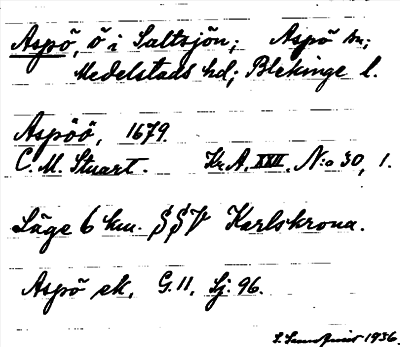 Aspö, ö i Saltsjön; Aspö sn;
Medelstads hd; Blekinge l.
Aspöö, 1679.
C. M. Stuart. Kr. A. XXII. No 30, 1.
Läge 6 km. SSV Karlskrona.
Aspö ek. G. 11, Sj. 96.
1936.